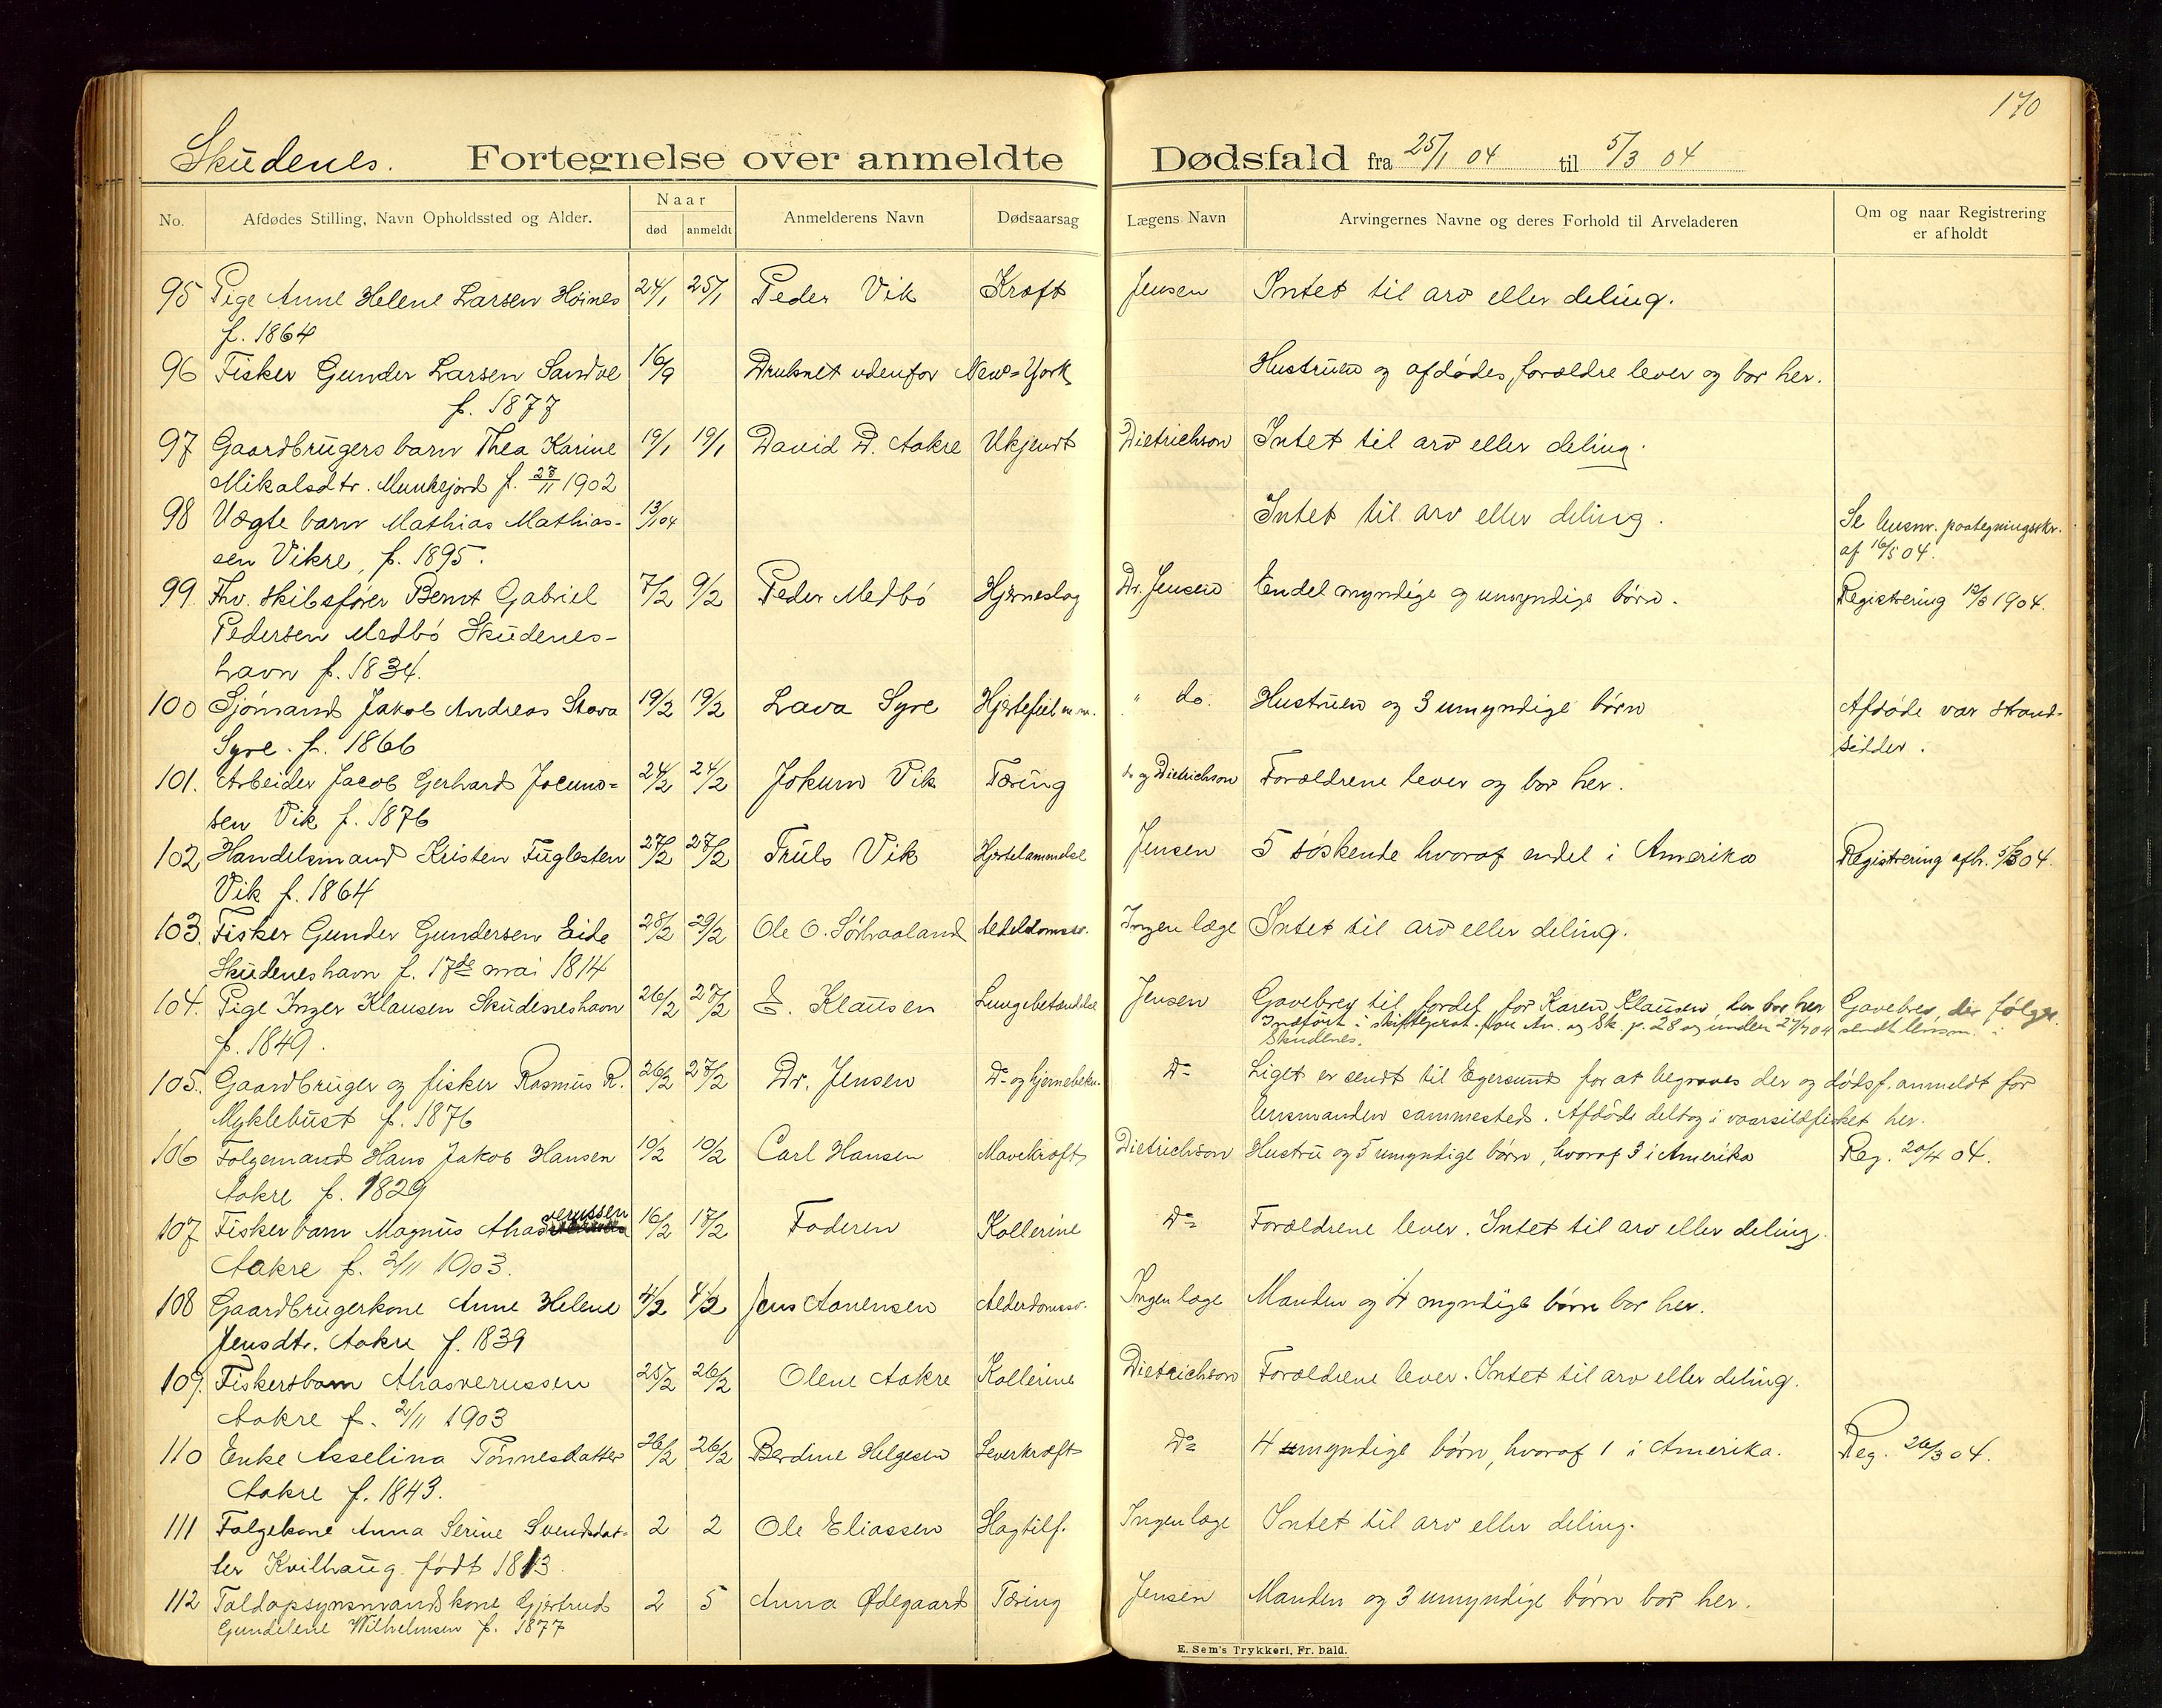 170
Skudenes. Fortegnelse over anmeldte Dødsfald fra 25/1 04 til 5/3 04
No. Afdødes Stilling, Navn Opholdssted og Alder. Naar død anmeldt Anmelderens Navn Dødsaarsag Lægens Navn Arvingernes Navne og deres Forhold til Arveladeren Om og naar Registrering er afholdt
95 Pige Anne Helene Larsen Høines 24/1 25/1 Peder Vik Kræft Jensen Intet til arv eller deling.
f. 1864
96 Fisker Gunder Larsen Sandve 16/9 Druknet udenfor New=York Hustruen og afdødes forældre lever og bor her.
f. 1877
97 Gaardbrugers barn Thea Karine 19/1 19/1 David D. Aakre Ukjendt Dietrichson Intet til arv eller deling.
Mikalsdtr. Munkejord f. 28/11 1902
98 Vægte barn Mathias Mathias- 13/1 04 Intet til arv eller deling. Se lensm. paategningsskr.
sen Vikre, f. 1895. af 16/5 04.
99. Fhv. skibsfører Bernt Gabriel 7/2 9/2 Peder Medbø Hjerneslag Dr. Jensen Endel myndige og umyndige børn. Registrering 12/3 1904.
Pedersen Medbø Skudenes-
havn f. 1834.
100 Sjømand Jakob Andreas Stava 19/2 19/2 Lava Syre Hjertefeil m.m. " do. Hustruen og 3 umyndige børn Afdøde var strand-
Syre. f. 1866 sidder.
101. Arbeider Jacob Gerhard Jocum= 24/2 24/2 Jokum Vik Tæring do og Dietrichson Forældrene lever og bor her.
sen Vik f. 1876
102 Handelsmand Kristen Fuglesten 27/2 27/2 Truls Vik Hjertelammelse Jensen 5 søskende hvoraf endel i Amerika Registrering afh. 5/3 04.
Vik f. 1864
103. Fisker Gunder Gundersen Eide 28/2 29/2 Ole O. Sørhaaland Aelderdomssv. Ingen læge Intet til arv eller deling.
Skudeneshavn f. 17de mai 1814
104. Pige Inger Klausen Skudeneshavn 26/2 27/2 E. Klausen Lungebetændelse Jensen Gavebrev til fordel for Karen Klausen, der bor her Gavebrev, der følger
f. 1849. Indført i skifteprot. for Av. og Sk. p. 28 og under 27/7 04 sendt lensm. i
Skudenes.
105. Gaardbruger og fisker Rasmus R. 26/2 27/2 Dr. Jensen Do og hjernebetæn. Do Liget er sendt til Egersund for at begraves der og dødsf. anmeldt for
Myklebust f. 1876 lensmanden sammesteds. Afdøde deltog i vaarsildfisket her.
106 Følgemand Hans Jakob Hansen 10/2 10/2 Carl Hansen Mavekræft Dietrichson Hustru og 5 umyndige børn, hvoraf 3 i Amerika Reg. 20/4 04.
Aakre f. 1829
107 Fisker barn Magnus Ahasverussen 16/2 17/2 Faderen Kollerine Do Forældrene lever. Intet til arv eller deling.
Aakre f. 2/11 1903.
108 Gaardbrugerkone Anne Helene 4/2 4/2 Jens Aanensen Alderdomssv. Ingen læge Manden og 4 myndige børn bor her.
Jensdtr. Aakre f. 1839
109. Fiskersbarn Ahasverussen 25/2 26/2 Olene Aakre Kollerine Dietrichson Forældrene lever. Intet til arv eller deling.
Aakre f. 2/11 1903
110 Enke Asselina Tønnesdatter 26/2 26/2 Berdine Helgesen Leverkræft Do 4 myndige børn, hvoraf 1 i Amerika. Reg. 26/3 04.
Aakre f. 1843.
111 Følgekone Anna Serine Svendsdat- 2 2 Ole Eliassen Slagtilf. Ingen læge Intet til arv eller deling.
ter Kvilhaug født 1813.
112 Toldopsynsmandskone Gjertrud 2 5 Anna Ødegaard Tæring Jensen Manden og 3 umyndige børn bor her.
Gundelene Wilhelmsen f. 1877
E. Sem's Trykkeri, Fr.hald.